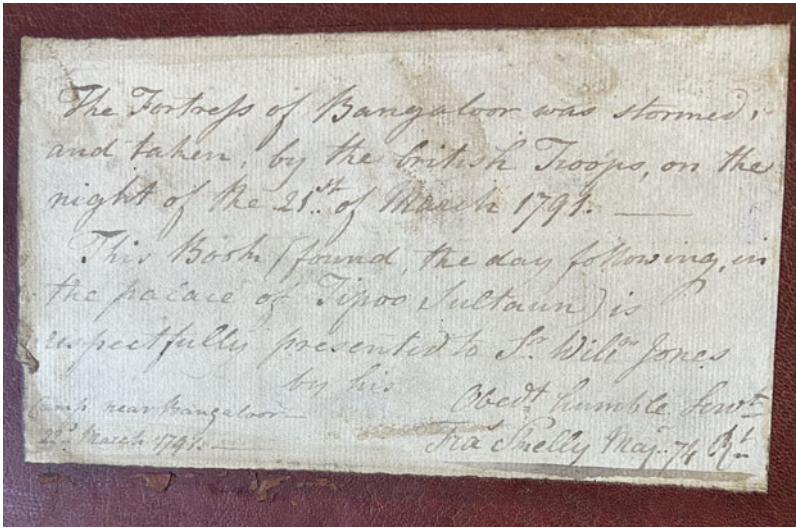 The Fortress of Bangaloor was stormed,
and taken, by the british Troops, on the
night of the 21st. of March 1791. —
This Book (found, the day following, in
the palace of Tipoo Sultaun) is
respectfully presented to Sr. Willm Jones
by his
Obedt. humble Servt.
Camp near Bangaloor
March 1791. —
Fras Skelly Majr. 74 Rt.